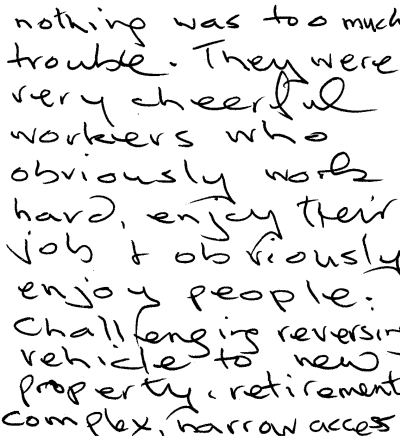 nothing was too much
trouble. They were
very cheerful
workers who
obviously work
hard, enjoy their
job + obviously
enjoy people.
Challenging reversing
vehicle to new
property, retirement
complex, narrow access